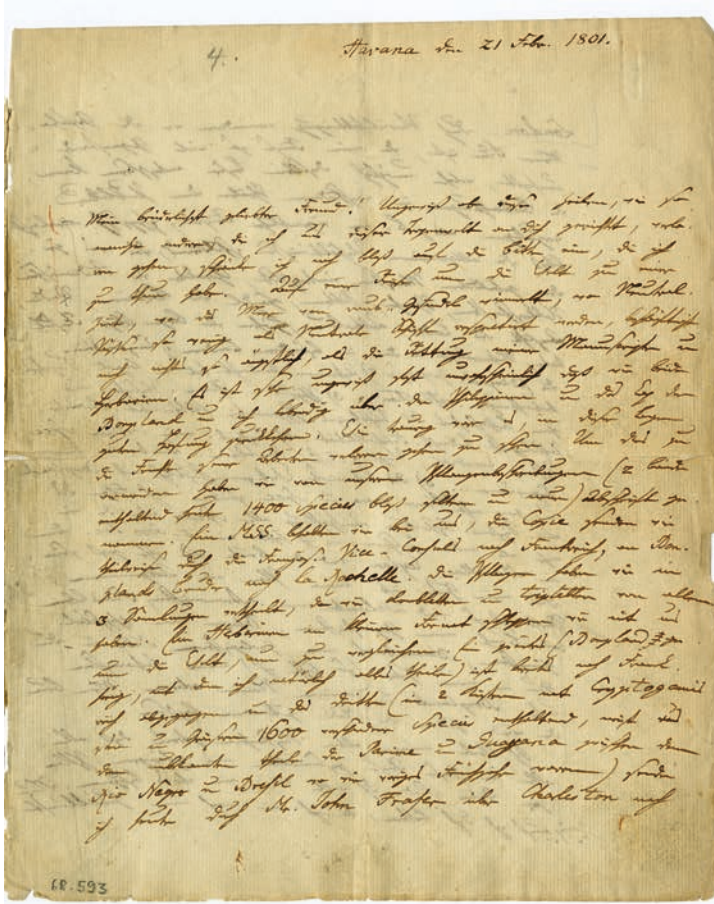 4.
Havana den 21 Febr. 1801.
Mein brüderlichst geliebter Freund! Ungewiß ob diese Zeilen, wie so
manche andere, die ich aus dieser Tropenwelt an dich gerichtet, verlo-
ren gehen, schränke ich mich bloß auf die Bitte ein, die ich
zu thun habe. Auf einer Reise um die Welt zu einer
Zeit, wo das Meer von Raub-Gesindel wimmelt, wo Neutral-
Pässe so wenig als Neutrale Schiffe respectirt werden, beschäftigt
mich nichts so ängstlich, als die Rettung meiner Manuscripte u
Herbarien. Es ist sehr ungewiß fast unwahrscheinlich daß wir beide
Bonpland u ich lebendig über die Philippinen u das Cap der
guten Hofnung zurückkehren. Wie traurig wär es, in dieser Lage
die Früchte seiner Arbeiten verloren gehen zu sehen. Um das zu
vermeiden haben wir von unseren Pflanzenbeschreibungen (2 Bände
enthaltend heute 1400 species bloß seltene u neue) Abschrift ge-
nommen. Ein MSS. behalten wir bei uns, die Copie senden wir
theilweise durch die französ. Vice-Consuls nach Frankreich, an Bon-
plands Bruder nach la Rochelle. Die Pflanzen haben wir in
3 Samlungen vertheilt, da wir doubletten u tripletten von allem
haben. Ein Herbarium im kleinen Format schleppen wir mit uns
um die Welt, um zu vergleichen. Ein zweites (Bonpland zuge-
hörig, mit dem ich natürlich alles theile) ist bereits nach Frank-
reich abgegangen u das dritte (in 2 Kisten mit Cryptogamis
u Gräsern 1600 verschiedene Species enthaltend, meist aus
dem unbekannten Theile der Parime u Guayana zwischen dem
Rio Negro u Bresil wo wir voriges Frühjahr waren) sende
ich heute durch Mr. John Fraser über Charleston nach
68.593